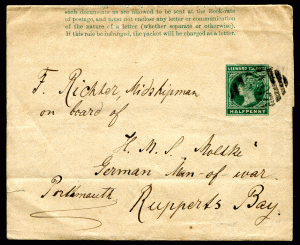 such documents as are allowed to be sent at the Book-rate
of postage, and must not enclose any letter or communication
of the nature of a letter (whether separate or otherwise).
If this rule be infringed, the packet will be charged as a letter.
HALFPENNY
F. Richter, Midshipman
on board of
H. M. S. Moltke
German Man of war
Portsmouth
Rupperts Bay.